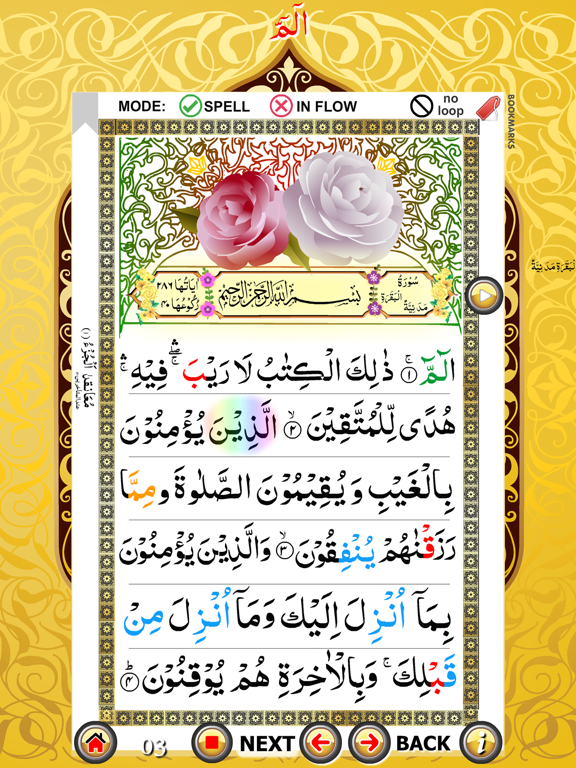 الٓمّٓ
MODE: SPELL IN FLOW no loop
BOOKMARKS
سُوْرَةُ الْبَقَرَةِ مَدَنِيَّةٌ
بِسْمِ اللهِ الرَّحْمٰنِ الرَّحِيْمِ
اٰيَاتُهَا ٢٨٦ رُكُوْعُهَا ٤٠
الٓمّٓ ۚ ﴿١﴾ ذٰلِكَ الْكِتٰبُ لَا رَيْبَ ۛۖ فِيْهِ ۛۚ
هُدًى لِّلْمُتَّقِيْنَ ۙ ﴿٢﴾ الَّذِيْنَ يُؤْمِنُوْنَ
بِالْغَيْبِ وَيُقِيْمُوْنَ الصَّلٰوةَ وَمِمَّا
رَزَقْنٰهُمْ يُنْفِقُوْنَ ۙ ﴿٣﴾ وَالَّذِيْنَ يُؤْمِنُوْنَ
بِمَآ اُنْزِلَ اِلَيْكَ وَمَآ اُنْزِلَ مِنْ
قَبْلِكَ ۚ وَبِالْاٰخِرَةِ هُمْ يُوْقِنُوْنَ ؕ ﴿٤﴾
03 NEXT BACK i